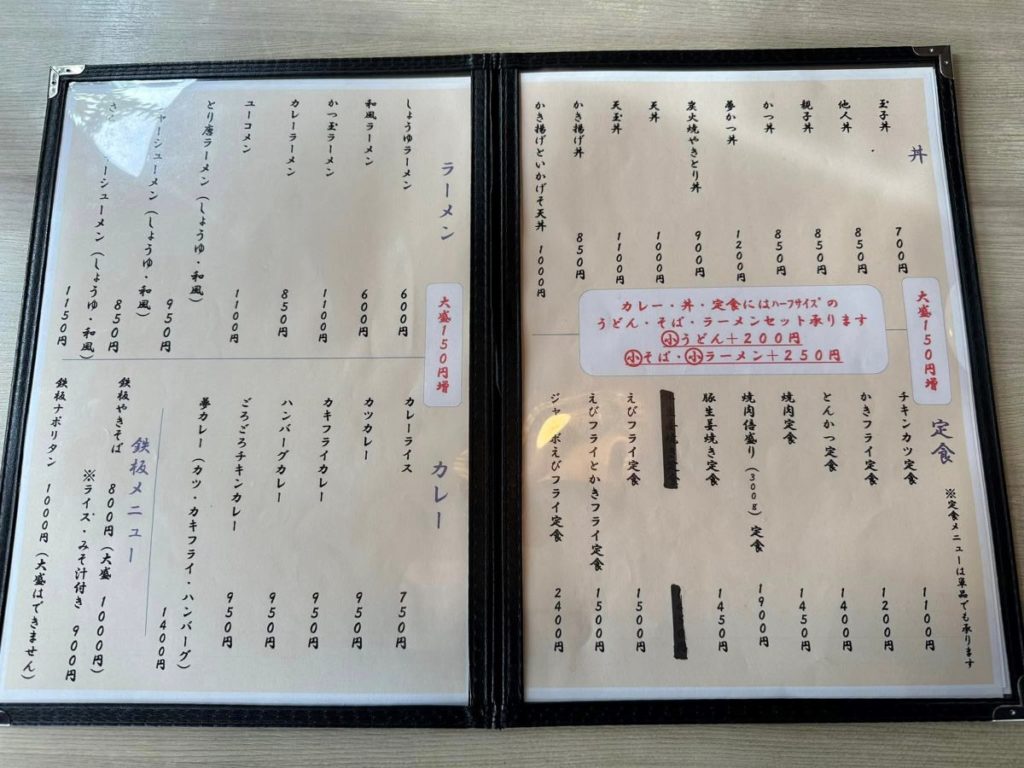 丼
玉子丼 700円
他人丼 850円
親子丼 850円
かつ丼 850円
夢かつ丼 1200円
炭火焼やきとり丼 900円
天丼 1000円
天玉丼 1100円
かき揚げ丼 850円
かき揚げといかげそ天丼 1000円
大盛150円増
カレー・丼・定食にはハーフサイズの
うどん・そば・ラーメンセット承ります
㊙小うどん+200円
小そば・小ラーメン+250円
定食
※定食メニューは単品でも承ります
チキンカツ定食 1100円
かきフライ定食 1200円
とんかつ定食 1400円
焼肉定食 1450円
焼肉倍盛り(300g)定食 1900円
豚生姜焼き定食 1450円
えびフライ定食 1500円
えびフライとかきフライ定食 1500円
ジャンボえびフライ定食 2400円
ラーメン
大盛150円増
しょうゆラーメン 600円
和風ラーメン 600円
かつ玉ラーメン 1100円
カレーラーメン 850円
ユーコメン 1100円
とり唐ラーメン(しょうゆ・和風) 950円
ャーシューメン(しょうゆ・和風) 850円
ーシューメン(しょうゆ・和風) 1150円
カレー
カレーライス 750円
カツカレー 950円
カキフライカレー 950円
ハンバーグカレー 950円
ごろごろチキンカレー 950円
夢カレー(カツ・カキフライ・ハンバーグ) 1400円
鉄板メニュー
鉄板やきそば 800円(大盛 1000円)
※ライス・みそ汁付き 900円
鉄板ナポリタン 1000円(大盛はできません)